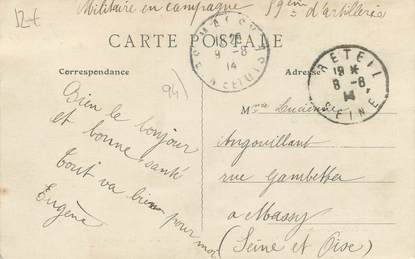 12€
Militaire en campagne 59eme d'artillerie
CARTE POSTALE
Correspondance
Adresse
94)
8-8
14
CRETEIL
8-8
14
SEINE
Bien le bonjour
et bonne santé
Tout va bien pour moi
Eugène
Lucienne
Angouillant
rue Gambetta
a Massy
(Seine et Oise)